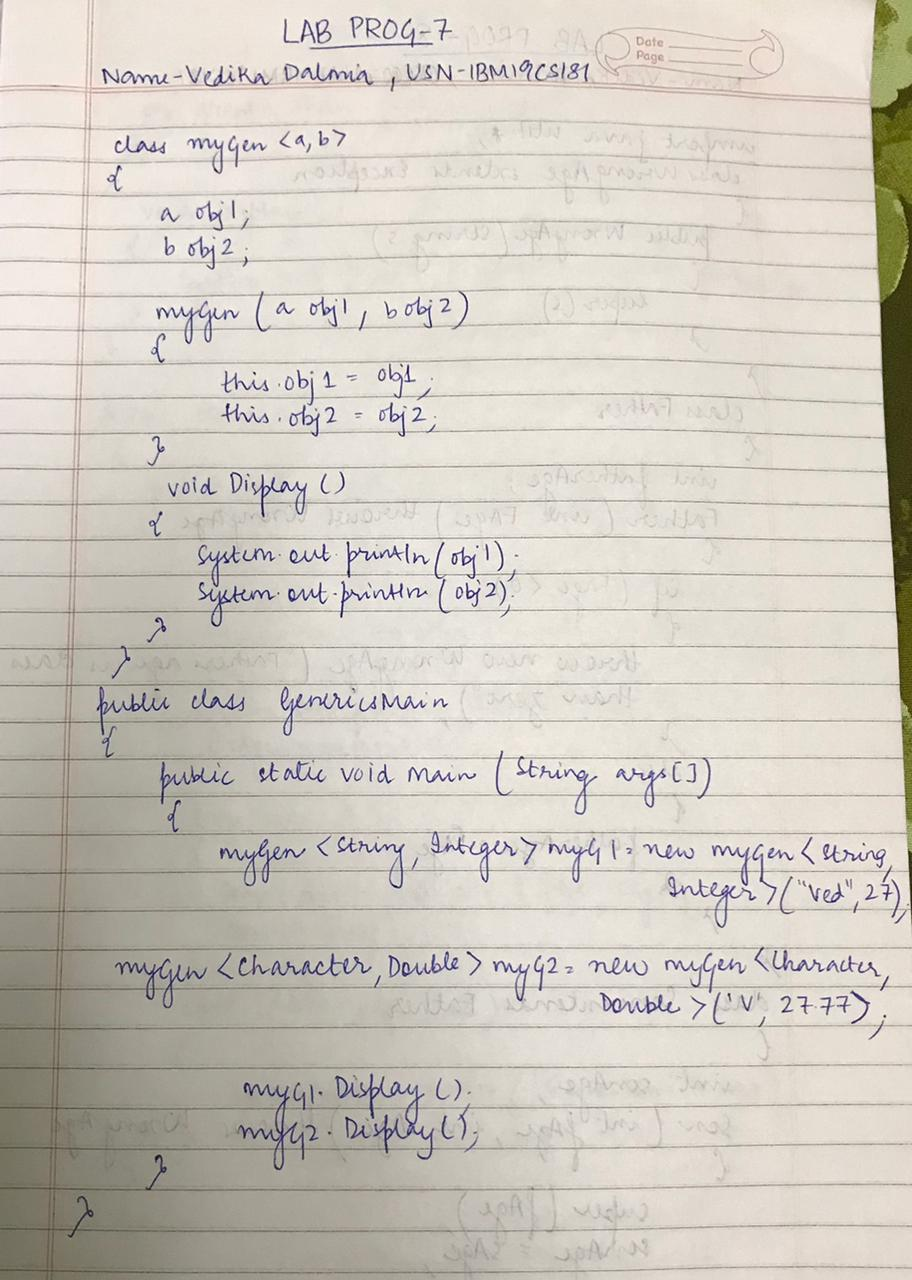 LAB PROG-7
Date
Page
Name-Vedika Dalmia, USN-1BM19CS181
class myGen <a,b>
{
a obj1;
b obj2;
myGen (a obj1, b obj2)
{
this.obj1 = obj1;
this.obj2 = obj2;
}
void Display ()
{
System.out.println(obj1);
System.out.println (obj2);
}
}
public class GenericsMain
{
public static void main (String args[])
{
myGen <String, Integer> myG1 = new myGen <String,
Integer>("Ved", 27);
myGen <Character, Double> myG2 = new myGen <Character,
Double>('V', 27.77);
myG1.Display ();
myG2.Display();
}
}